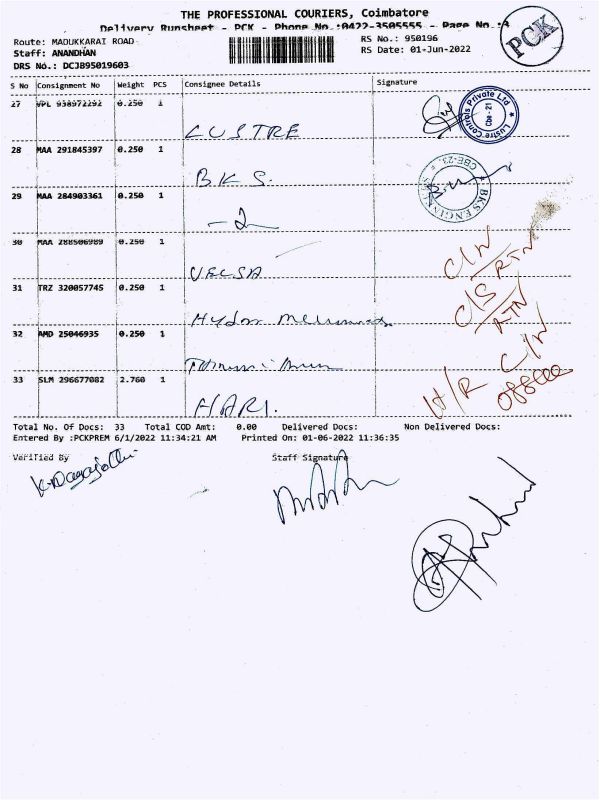 THE PROFESSIONAL COURIERS, Coimbatore
Delivery Runsheet - PCK - Phone No.:0422-3505555 - Page No.:3
PCK
Route: MADUKKARAI ROAD
RS No.: 950196
Staff: ANANDHAN
RS Date: 01-Jun-2022
DRS No.: DCJB95019603
S No Consignment No Weight PCS Consignee Details Signature
27 VPL 938972292 0.250 1
LUSTRE
Lustre Controls Private Ltd
28 MAA 291845397 0.250 1
BKS.
BKS ENGIN
CBE-23.
29 MAA 284903361 0.250 1
-2
30 MAA 288506989 0.250 1
VECSA
C/N
RTN
31 TRZ 320057745 0.250 1
C/S
RTN
Hydor
32 AMD 25046935 0.250 1
C/N
33 SLM 296677082 2.760 1
H/R
HARI.
Total No. Of Docs: 33 Total COD Amt: 0.00 Delivered Docs: Non Delivered Docs:
Entered By :PCKPREM 6/1/2022 11:34:21 AM Printed On: 01-06-2022 11:36:35
Verified By Staff Signature